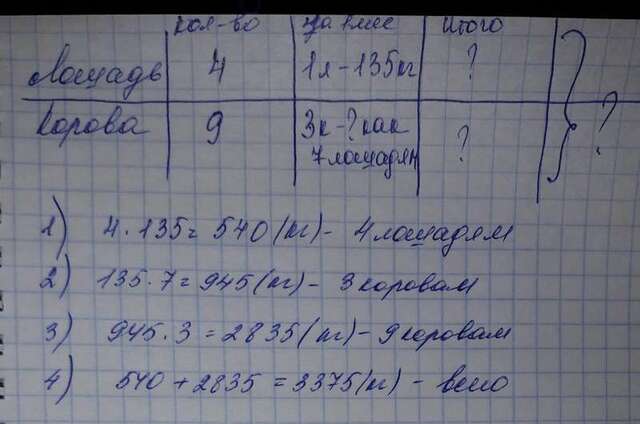 кол-во на 1 мес итого
Лощадь 4 1л-135кг ?
Корова 9 3к-?как ? ?
7лощадям
1) 4·135=540(кг)- 4лощадям
2) 135·7=945(кг)- 3коровам
3) 945·3=2835(кг)-9коровам
4) 540+2835=3375(кг)-всего